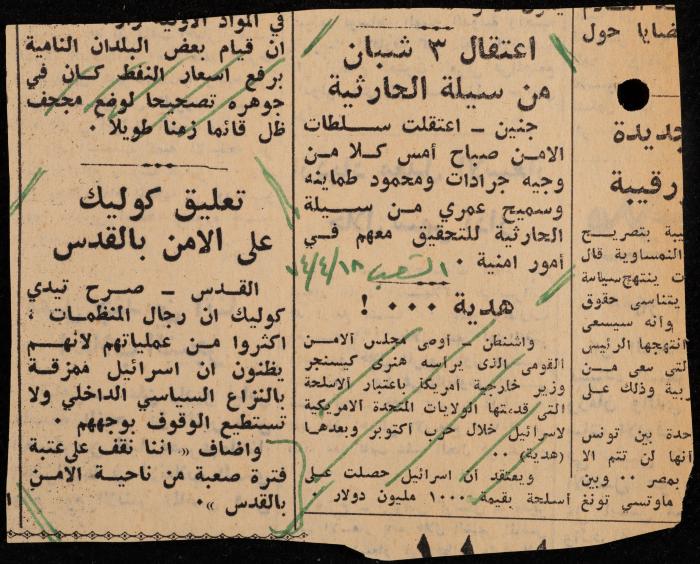 اعتقال ٣ شبان
من سيلة الحارثية
جنين – اعتقلت سلطات
الامن صباح أمس كلا من
وجيه جرادات ومحمود طماينه
وسميح عمري من سيلة
الحارثية للتحقيق معهم في
أمور امنية .
الشعب ٧٤/٤/١٨
هدية ... !
واشنطن – أوصى مجلس الامن
القومي الذي يرأسه هنري كيسنجر
وزير خارجية أمريكا باعتبار الاسلحة
التي قدمتها الولايات المتحدة الامريكية
لاسرائيل خلال حرب أكتوبر وبعدها
(هدية) ..
ويعتقد أن اسرائيل حصلت على
أسلحة بقيمة ١٠٠٠ مليون دولار .
في المواد الاولية
ان قيام بعض البلدان النامية
برفع اسعار النفط كان في
جوهره تصحيحا لوضع مجحف
ظل قائما زمنا طويلا .
تعليق كوليك
على الامن بالقدس
القدس – صرح تيدي
كوليك ان رجال المنظمات ،
اكثروا من عملياتهم لانهم
يظنون ان اسرائيل ممزقة
بالنزاع السياسي الداخلي ولا
تستطيع الوقوف بوجههم .
واضاف « اننا نقف على عتبة
فترة صعبة من ناحية الامن
بالقدس ».
ضايا حول
جديدة
رقيبة
بية بتصريح
النمساوية قال
ت ينتهج سياسة
يتناسى حقوق
وأنه سيسعى
انتهجها الرئيس
لتي سعى من
ربية وذلك على
حدة بين تونس
أنها لن تتم الا
بمصر .. وبين
ماوتسي تونغ